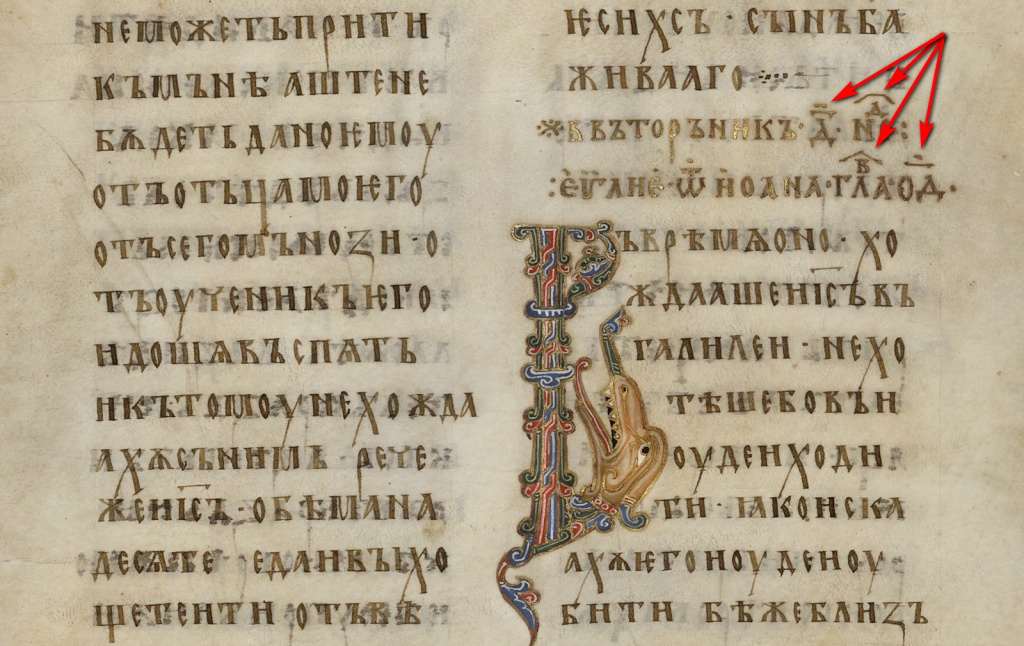 неможетьприти
къмънѣ аштене
бѫдетьданоѥмоу
отъотьцамоѥго
отъсегомънози · о
тъоученикъѥго
идошѧвъспѧть
икътомоунехожда
ахѫсънимь · рече
жеиі҃съ · обѣмана
десѧте єдаивыхо
щетеити отъвѣ
іесихсъ · сынъба
живааго
※въвъторьникъ · д҃ · нд҃ :
: еѵ҃гл҃ие · ѿ иоана · глв҃а · од҃ ·
ъврѣмѧоно · хо
ждаашеиі҃съвъ
галилеи · нехо
тѣшебовъи
оудеиходи
ти · ꙗкоиска
ахѫѥгоиоудеиоу
бити бѣжеблизъ